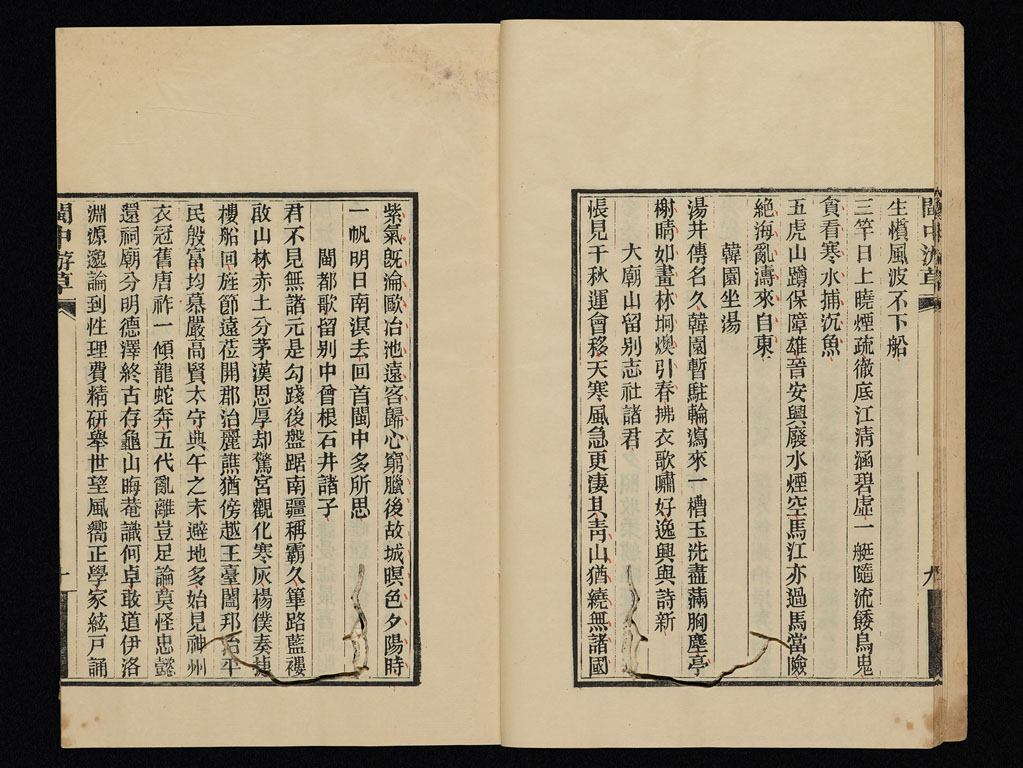 生憤風波不下船
三竿日上曉煙疏徹底江清涵碧虛一艇隨流餧烏鬼
貪看寒水捕沉魚
五虎山蹲保障雄晉安興廢水煙空馬江亦過馬當險
絶海亂濤來自東
韓園坐湯
湯井傳名久韓園暫駐輪瀉來一槽玉洗盡滿胸塵亭
榭晴如畫林坰燠引春拂衣歌嘯好逸興與詩新
大廟山留別志社諸君
悵見千秋運會移天寒風急更淒其靑山猶繞無諸國
閩中游草
九
紫氣旣淪歐冶池遠客歸心窮臘後故城暝色夕陽時
一帆明日南溟去回首閩中多所思
閩都歌留別中曾根石井諸子
君不見無諸元是勾踐後盤踞南疆稱霸久篳路藍褸
啟山林赤土分茅漢恩厚却驚宮觀化寒灰楊僕奏捷
樓船回旌節遠莅開郡治麗譙猶傍越王臺闔邦昇平
民殷富均慕嚴高賢太守典午之末避地多始見神州
衣冠舊唐祚一傾龍蛇奔五代亂離豈足論莫怪忠懿
還祠廟分明德澤終古存龜山晦菴識何卓敢道伊洛
淵源邈論到性理費精研舉世望風嚮正學家絃戶誦
閩中游草
十